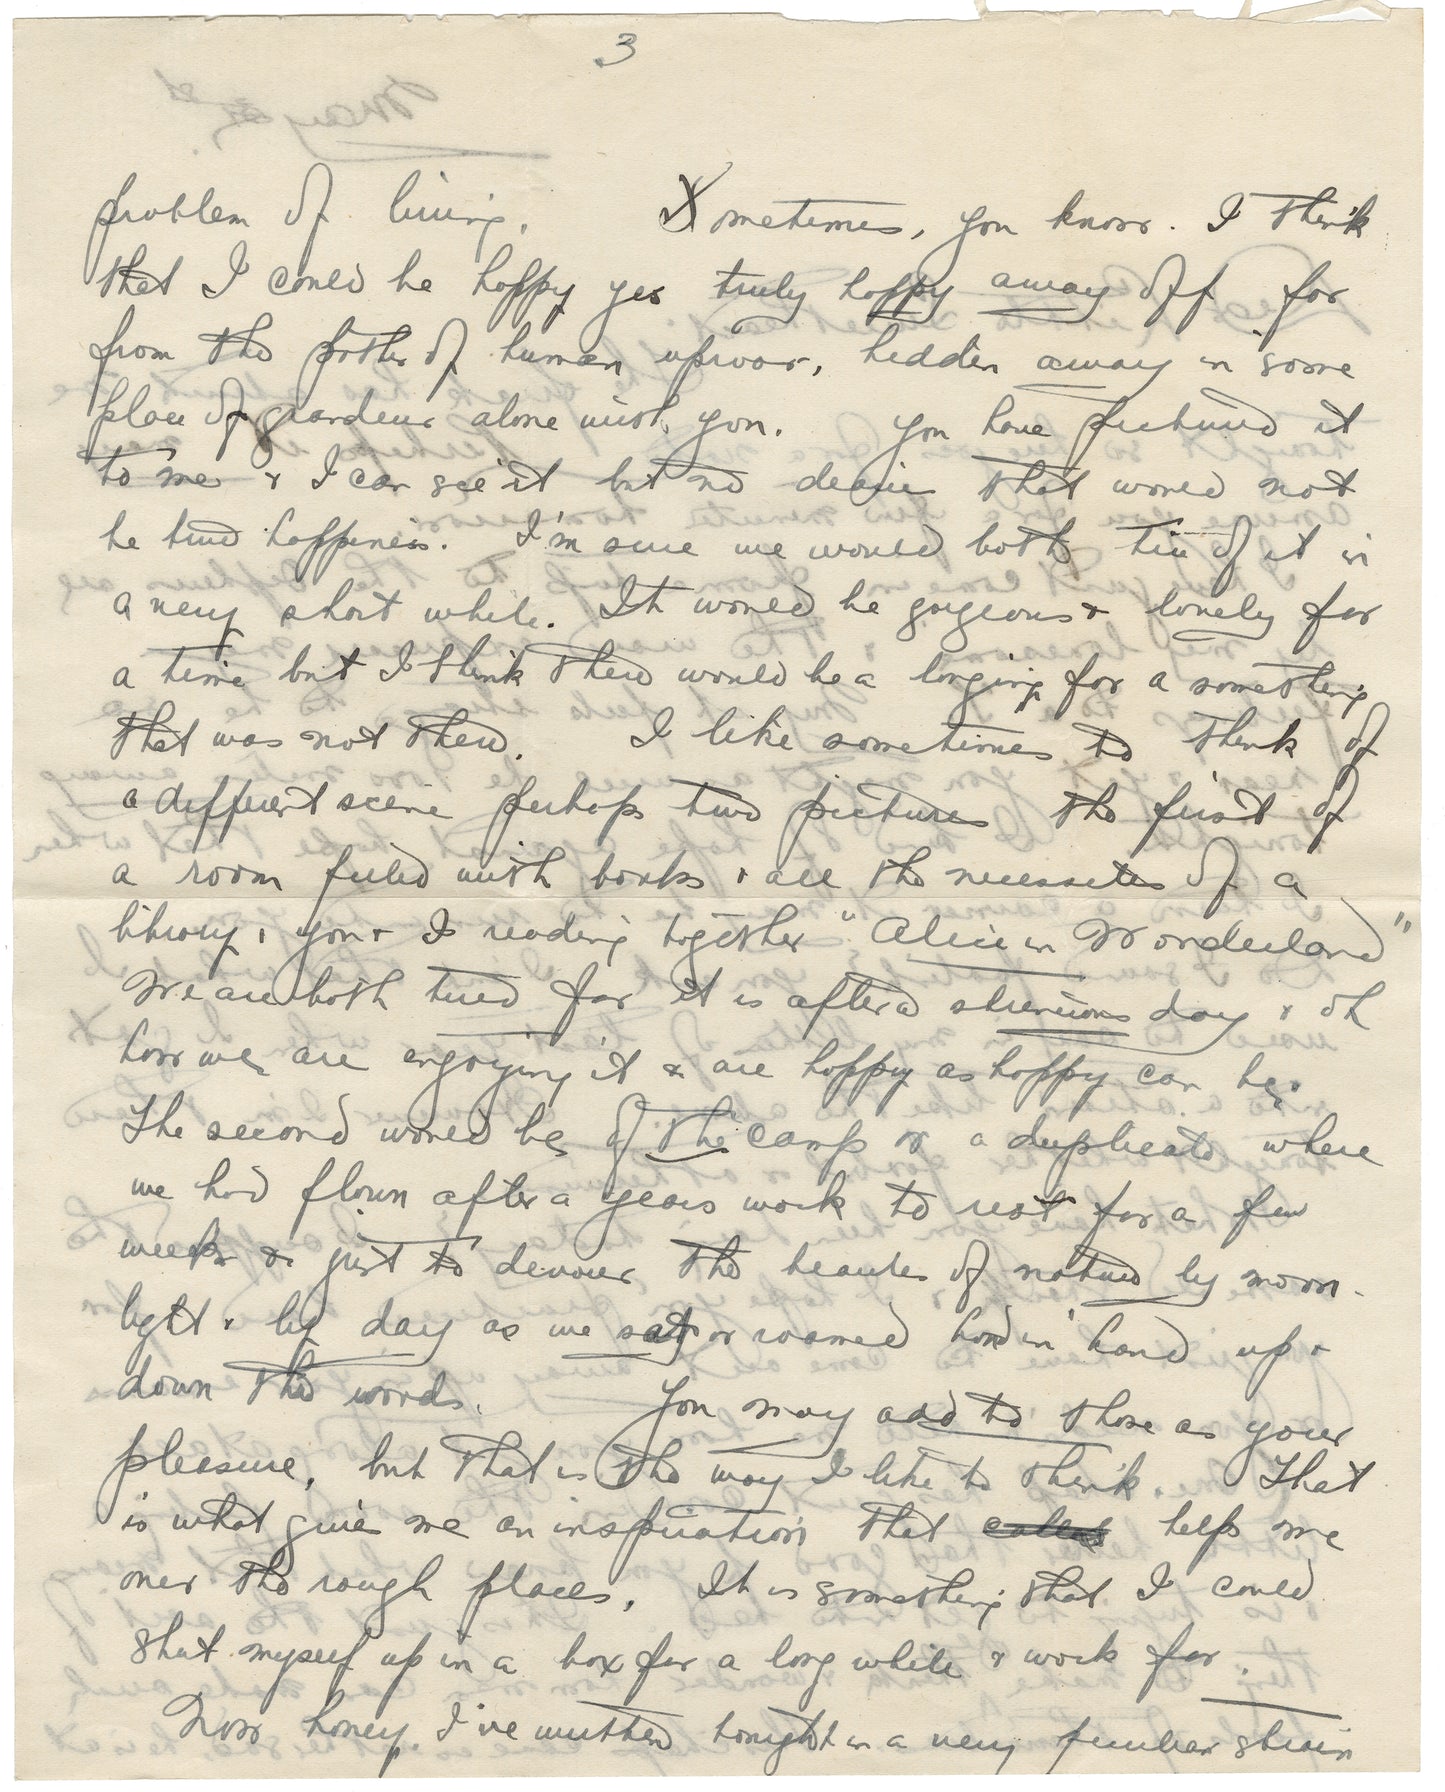 3
problem of living. Sometimes, you know. I think
that I could be happy yes truly happy away off far
from the pother of human uproar, hidden away in some
place of grandeur alone with you. You have pictured it
to me & I can see it but no dearie that would not
be true happiness. I'm sure we would both tire of it in
a very short while. It would be gorgeous & lovely for
a time but I think there would be a longing for a something
that was not there. I like sometimes to think of
a different scene perhaps two pictures the first of
a room filled with books & all the necessites of a
library, & you & I reading together "Alice in Wonderland"
We are both tired for it is after a strenuous day & oh
how we are enjoying it & are happy as happy can be.
The second would be of the camp or a duplicate where
we had flown after a years work to rest for a few
weeks & just to devour the beauties of nature by moon-
light & by day as we sat or roamed hand in hand up &
down the woods. You may add to those as your
pleasure, but that is the way I like to think. That
is what gives me an inspiration that helps me
over the rough places. It is something that I could
shut myself up in a box for a long while & work for.
Now honey, I've written tonight in a very peculiar strain